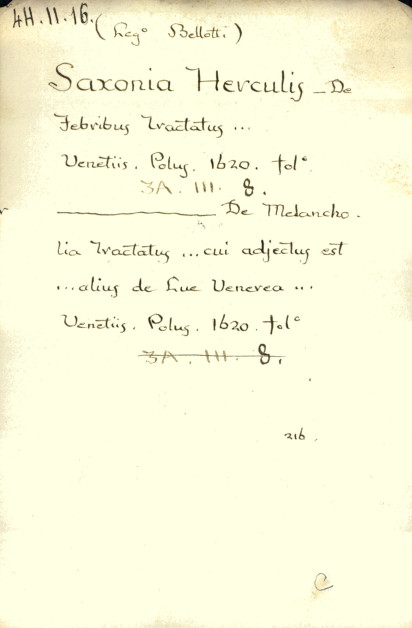 4H.II.16. (Leg° Bellotti)
Saxonia Herculis _ De
Febribus Tractatus ...
Venetiis. Polus. 1620. fol°
3A. III. 8.
De Melancho.
lia Tractatus ... cui adjectus est
... alius de Lue Venerea ...
Venetiis. Polus. 1620. fol°
3A. III. 8.
216.
C